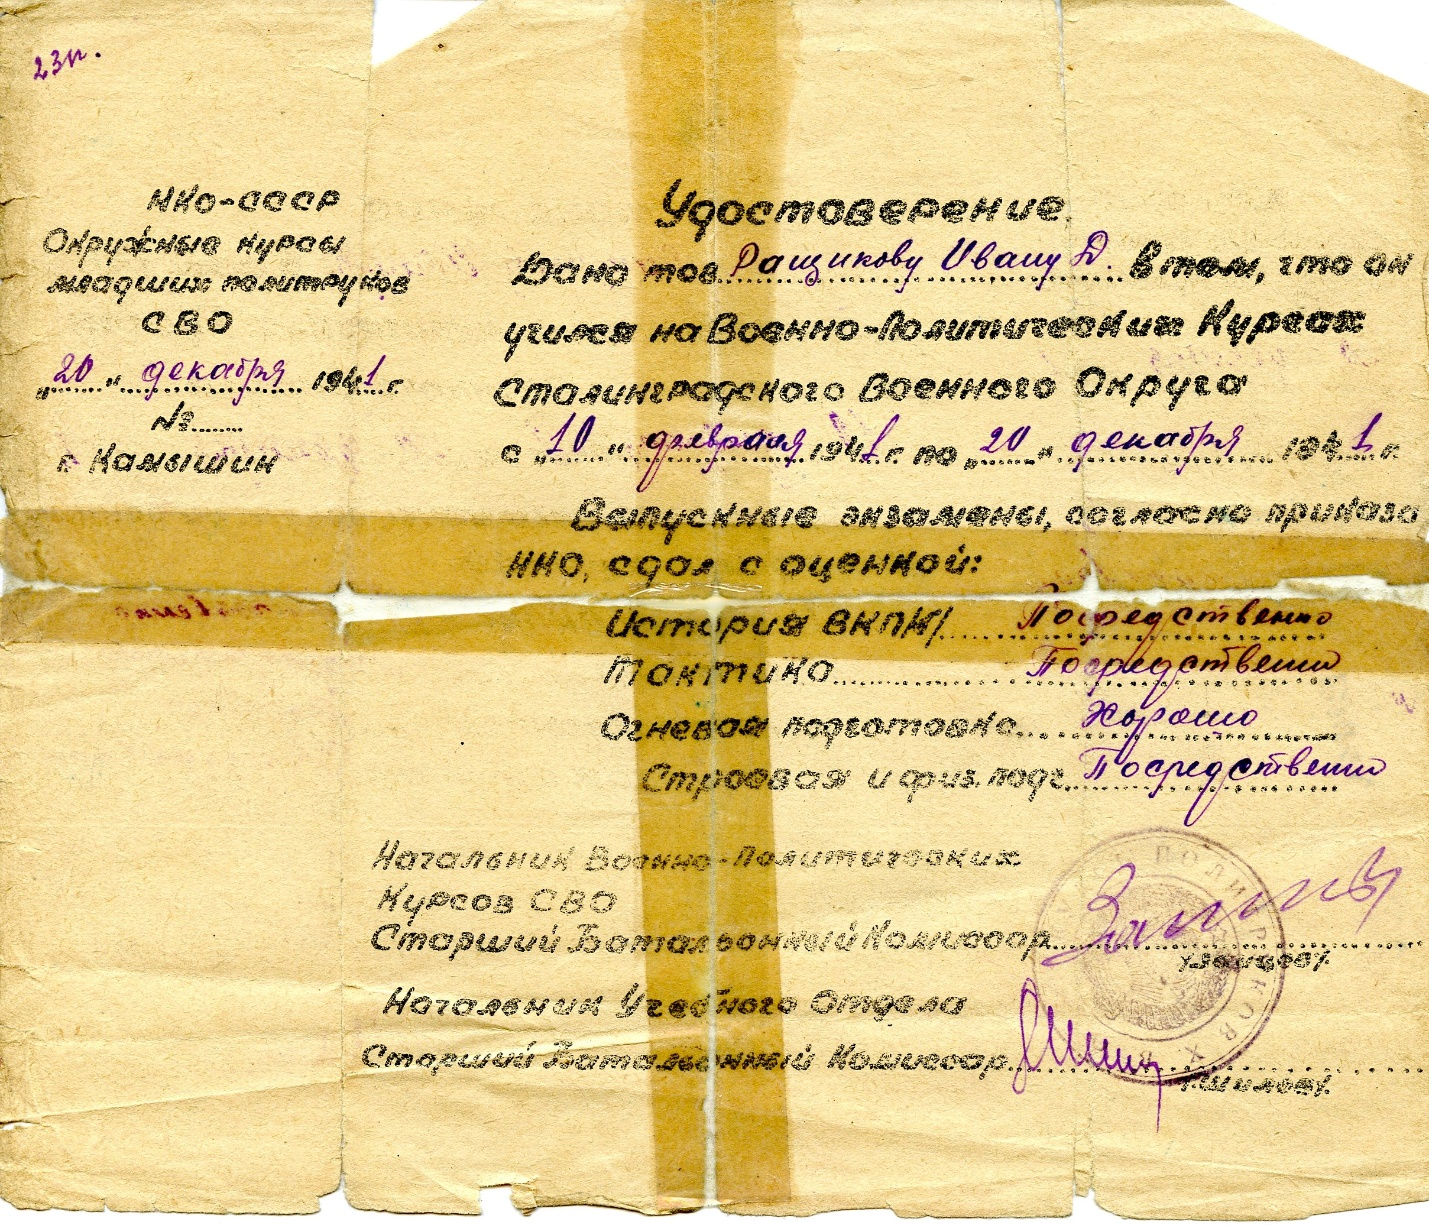 23п.
НКО-СССР
Окружные курсы
младших политруков
СВО
„20" декабря 1941 г.
№
г. Камышин
Удостоверение.
Дано тов. Ращикову Ивану Д. в том, что он
учился на Военно-Политических Курсах
Сталинградского Военного Округа
с „10" февраля 1941 г. по „20" декабря 1941 г.
Выпускные экзамены, согласно приказа
НКО, сдал с оценкой:
История ВКП/ Посредственно
Тактика Посредственно
Огневая подготовка Хорошо
Строевая и физ. подг. Посредственно
Начальник Военно-Политических
Курсов СВО
Старший Батальонный Комиссар
/Зайцев/.
Начальник Учебного Отдела
Старший Батальонный Комиссар
/Шилов/.
ПОЛИТРУКОВ